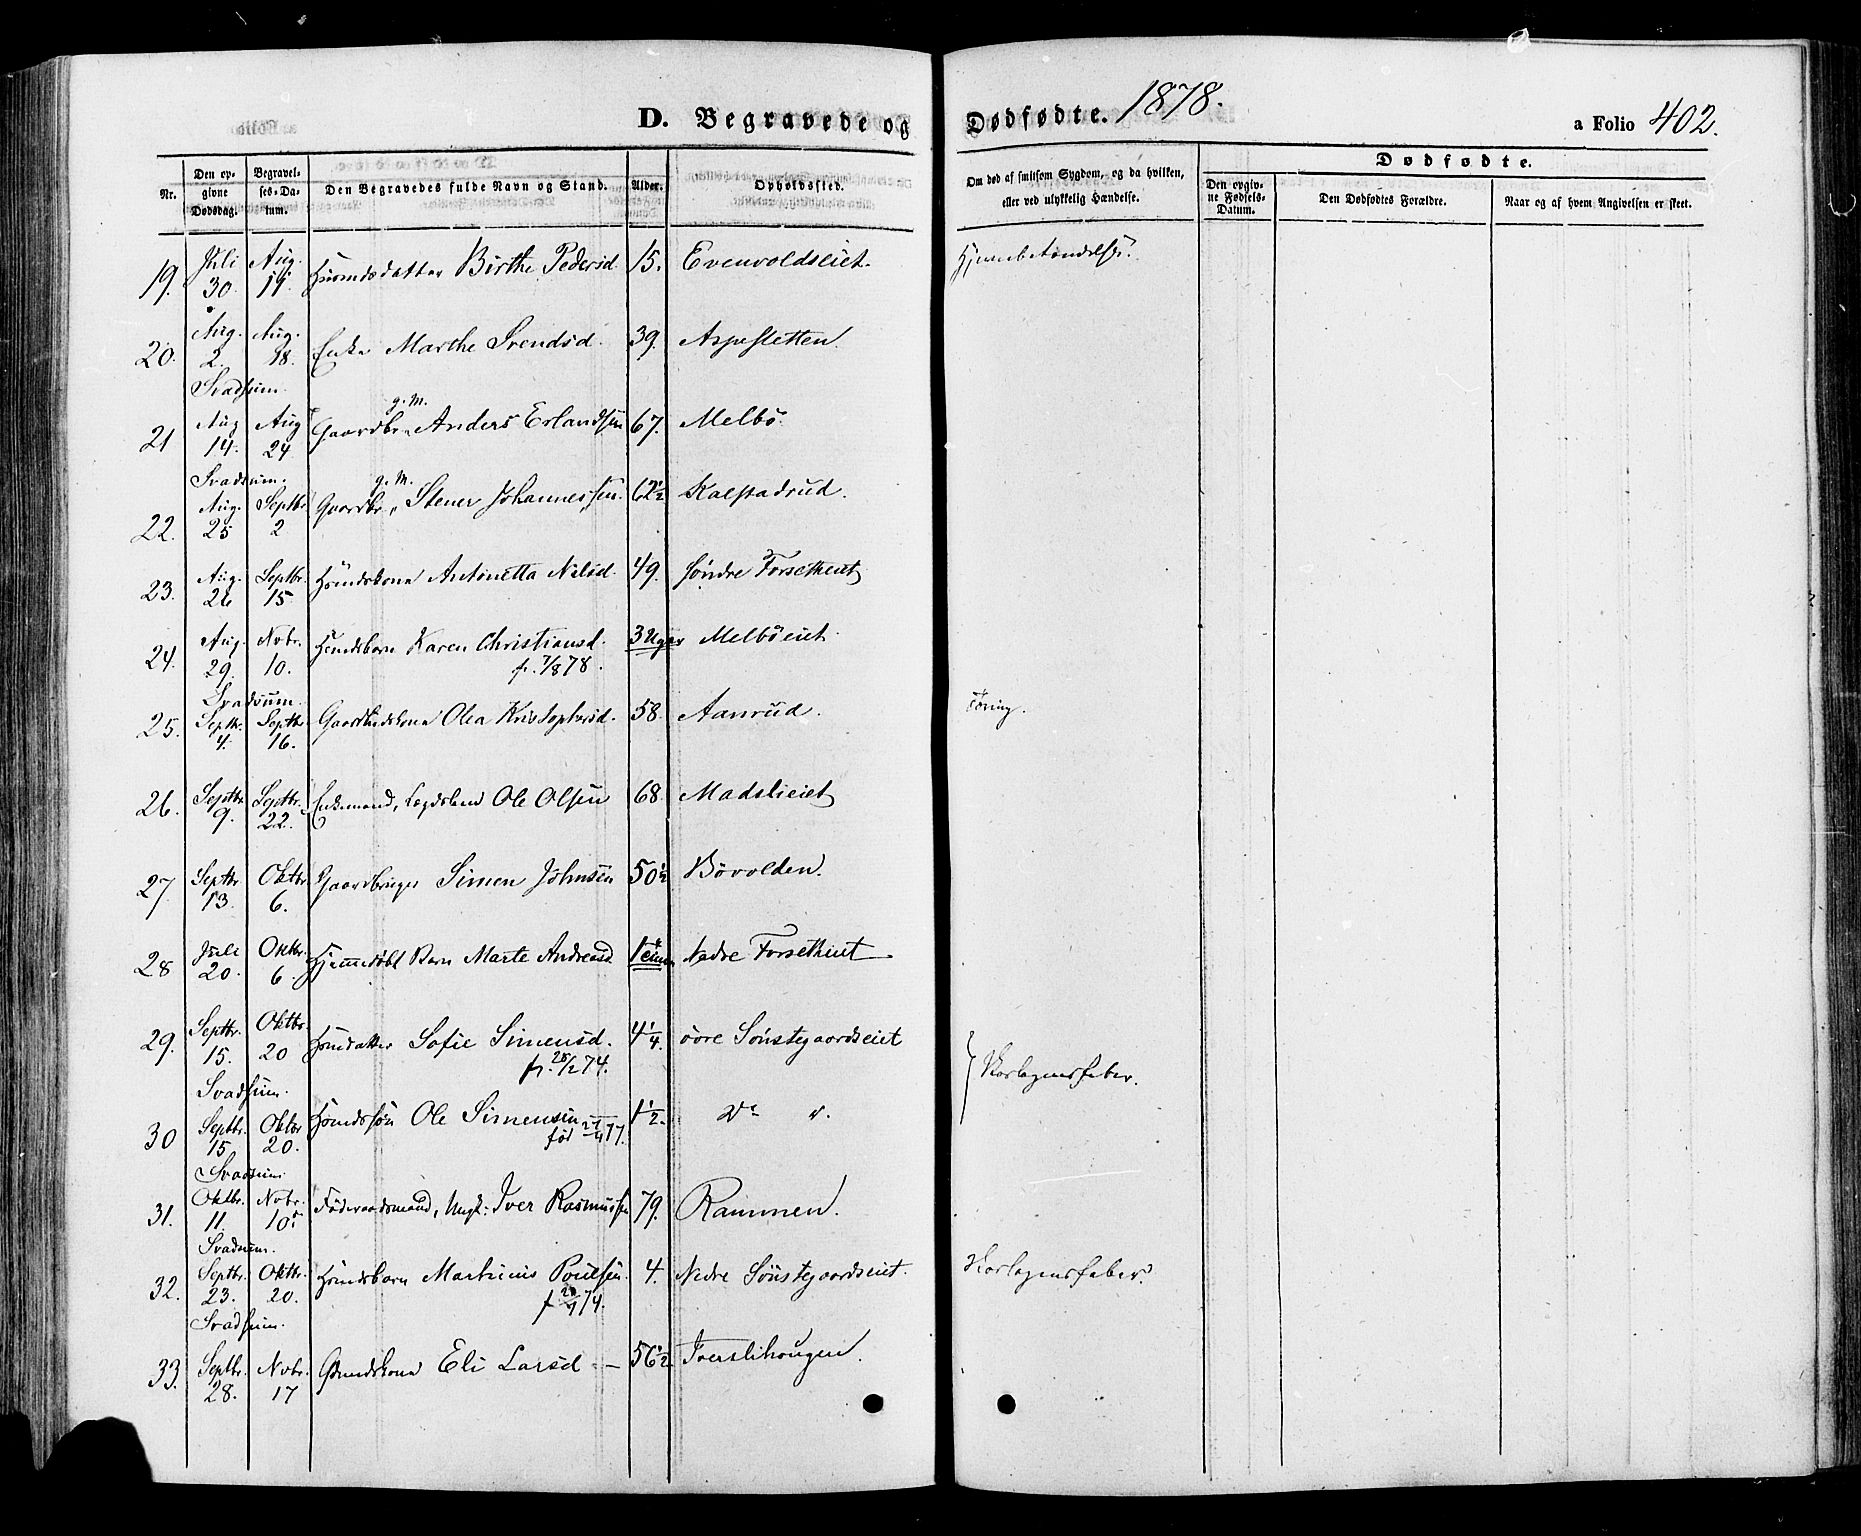 D. Begravede og Dødfødte. 1878.
a Folio 402.
Nr.
Den opgivne Dødsdag.
Begravelses-Datum.
Den Begravedes fulde Navn og Stand.
Alder.
Opholdssted.
Om død af smitsom Sygdom, og da hvilken, eller ved ulykkelig Hændelse.
Dødfødte.
Den opgivne Fødsels-Datum.
Den Dødfødtes Forældre.
Naar og af hvem Angivelsen er skeet.
19. Juli 30. Aug. Birthe Pedersd. 15. Evenvoldseiet. Hjernebetændelse.
20. Aug. 2. Aug. 18. Enke Marthe Svendsd. 39. Aspesletten.
Svadsum.
21 Aug 14. Aug 24 Gaardbr. g. M. Anders Erlandsen 67. Melbö.
Svadsum.
22. Aug. 25 Septbr 2 Gaardbr. g. M. Stener Johannessen. 62½ Kalstadrud.
23. Aug. 26 Septbr. 15. Huusmdskone Antonetta Nilsd. 49. søndre Forsetheiet
24. Aug. 29. Novbr. 10. Karen Christiansd. f. 7/8 78. 3 Uger Melböeiet.
Svadsum.
25. Septbr. 4. Septbr 16. Olea Kristophersd. 58. Aanrud. Tæring.
26. Septbr 9. Septbr. 22. Enkemand, Lægdslem Ole Olsen 68. Madslieiet
27. Septbr 13. Oktbr 6. Gaardbruger Simen Johnsen 50½ Bövolden.
28 Juli 20. Oktbr. 6. Hjemmedøbt Barn Marte Andreasd. Nedre Forsetheiet
29. Septbr. 15. Oktbr. 20 Sofie Simensd. f. 28/2 74. 4¼. övre Sönstegaardseiet
Strubehoste
Svadsum.
30 Septbr. 15. Oktbr 20. Ole Simensen 1½ Do do.
Svadsum
31. Oktbr. 11. Novbr. 10. Föderaadsmand, Ungk: Iver Rasmussen 79. Rammen.
Svadsum.
32. Septbr. 23. Oktbr. 20. Martinus Poulsen. 4. Nedre Sönstegaardseiet.
Svadsum.
33. Septbr. 28. Novbr. 17 Eli Larsd. 56½ Tverslihougen.